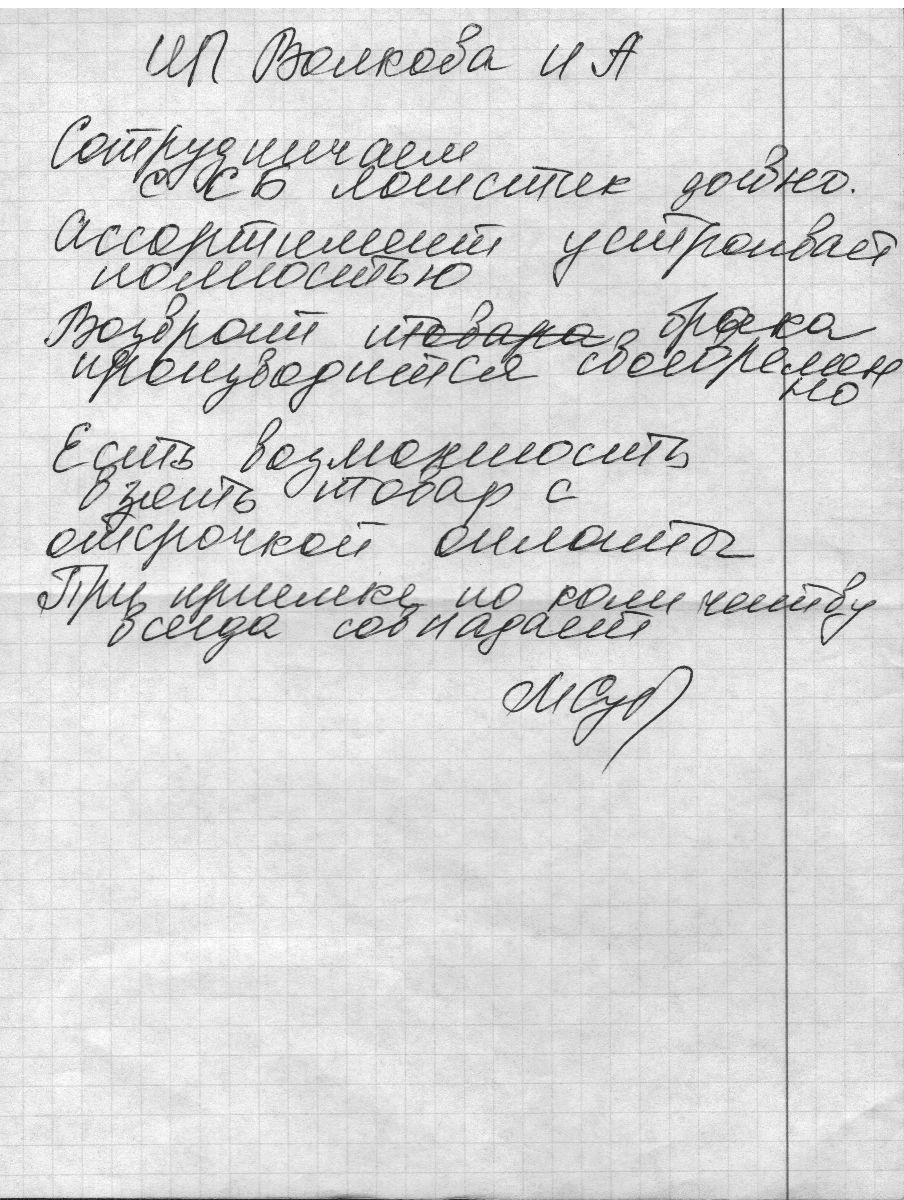 ИП Волкова И А
Сотрудничаем
с СБ логистик давно.
Ассортимент устроивает
полностью
Возврат товара брака
производится своевремен
но
Есть возможность
взять товар с
отсрочкой оплаты
При приемке по количеству
всегда совпадает